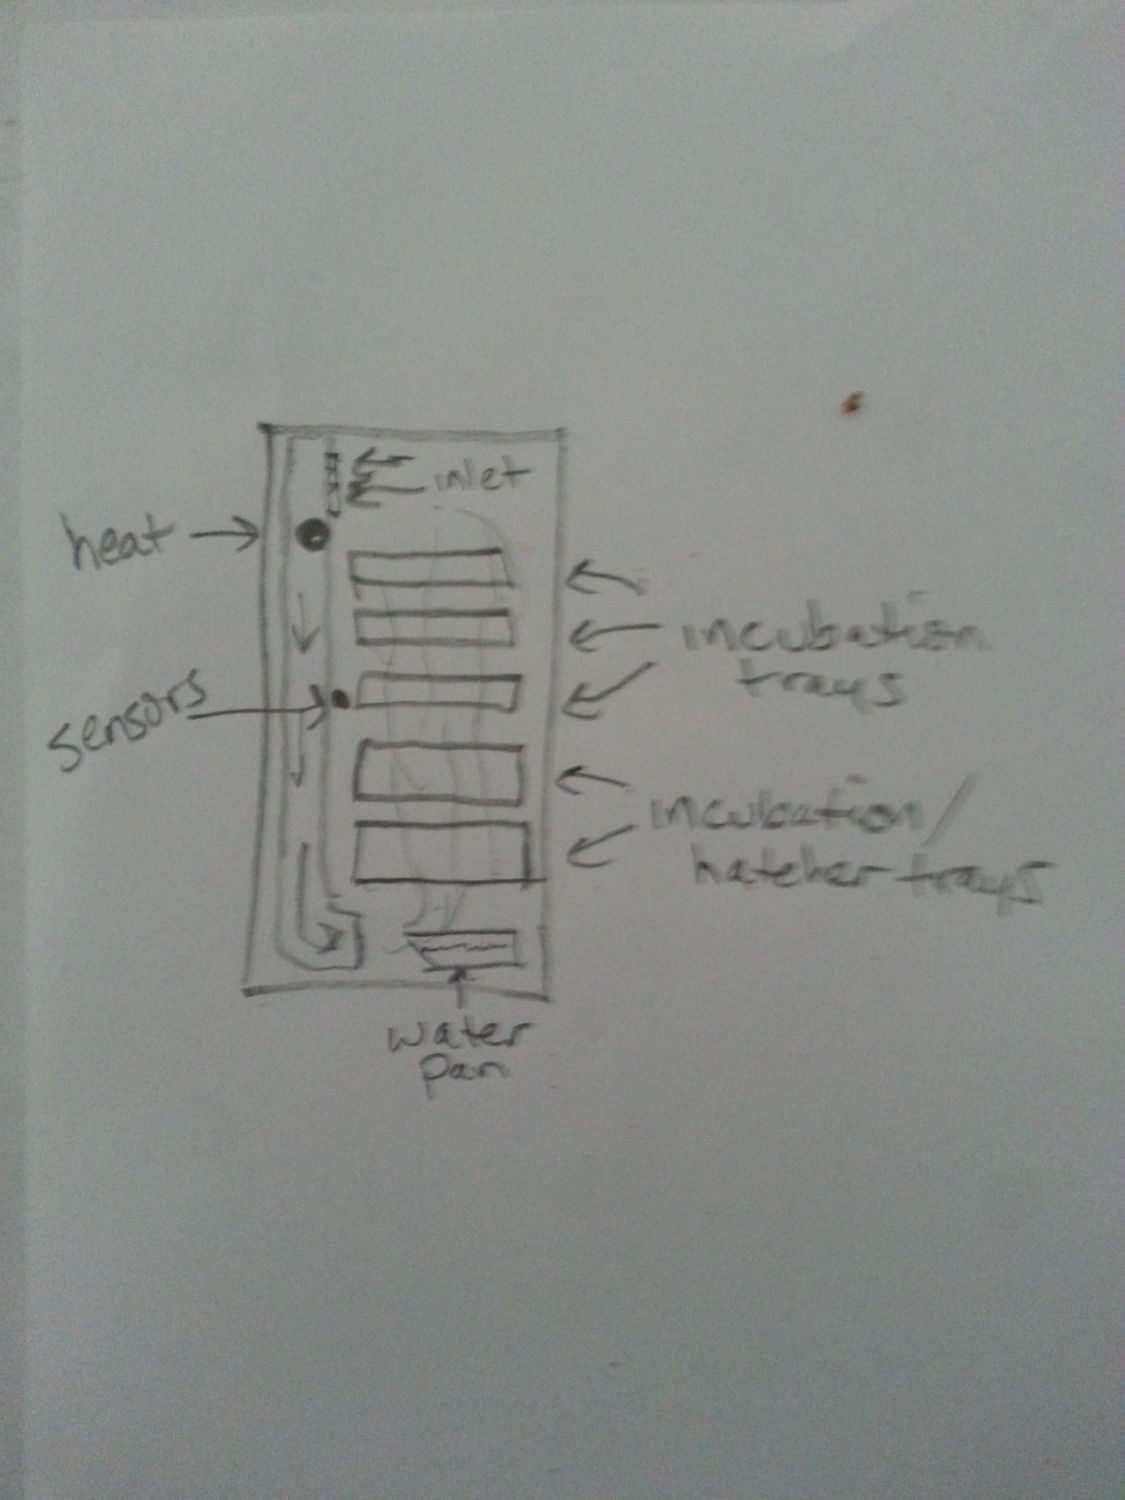 inlet
heat
sensors
incubation
trays
incubation/
hatcher trays
water
pan